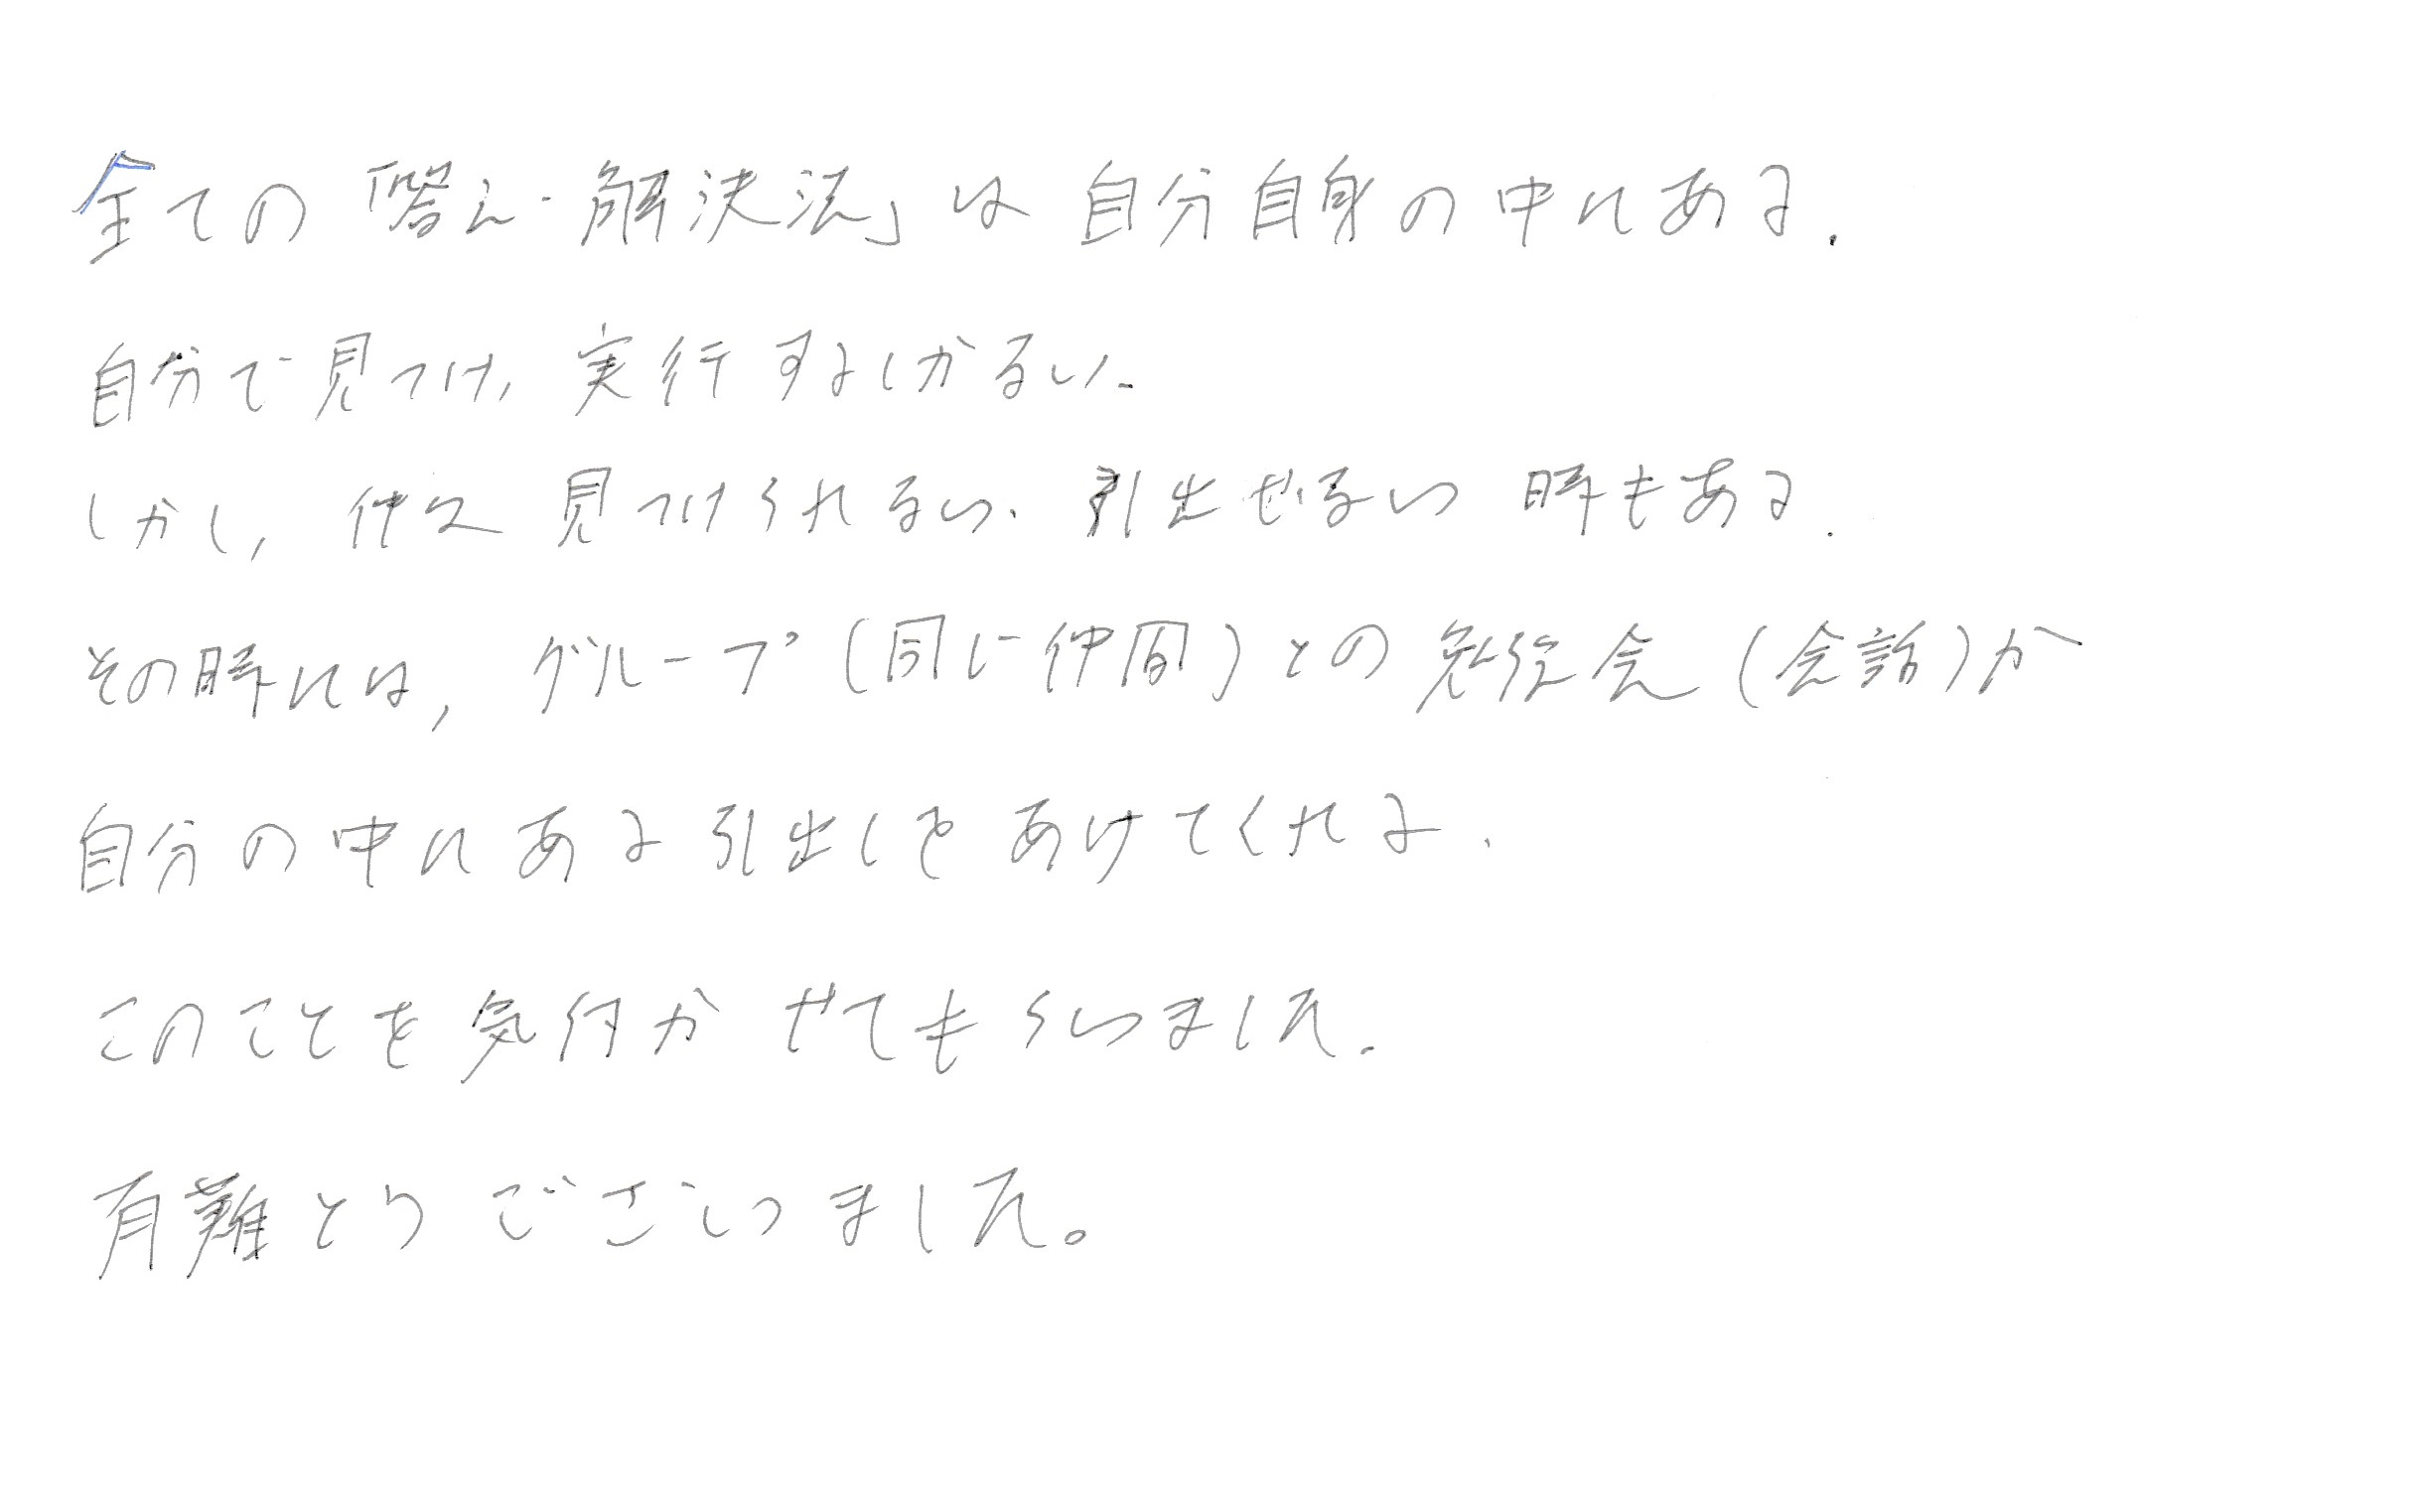 全ての「答え・解決法」は自分自身の中にある.
自分で見つけ, 実行するしかない.
しかし, 仲々見つけられない. 引出せない時もある.
その時には, グループ(同じ仲間)との勉強会(会話)が
自分の中にある引出しをあけてくれる.
このことを気付かせてもらいました.
有難とうございました。